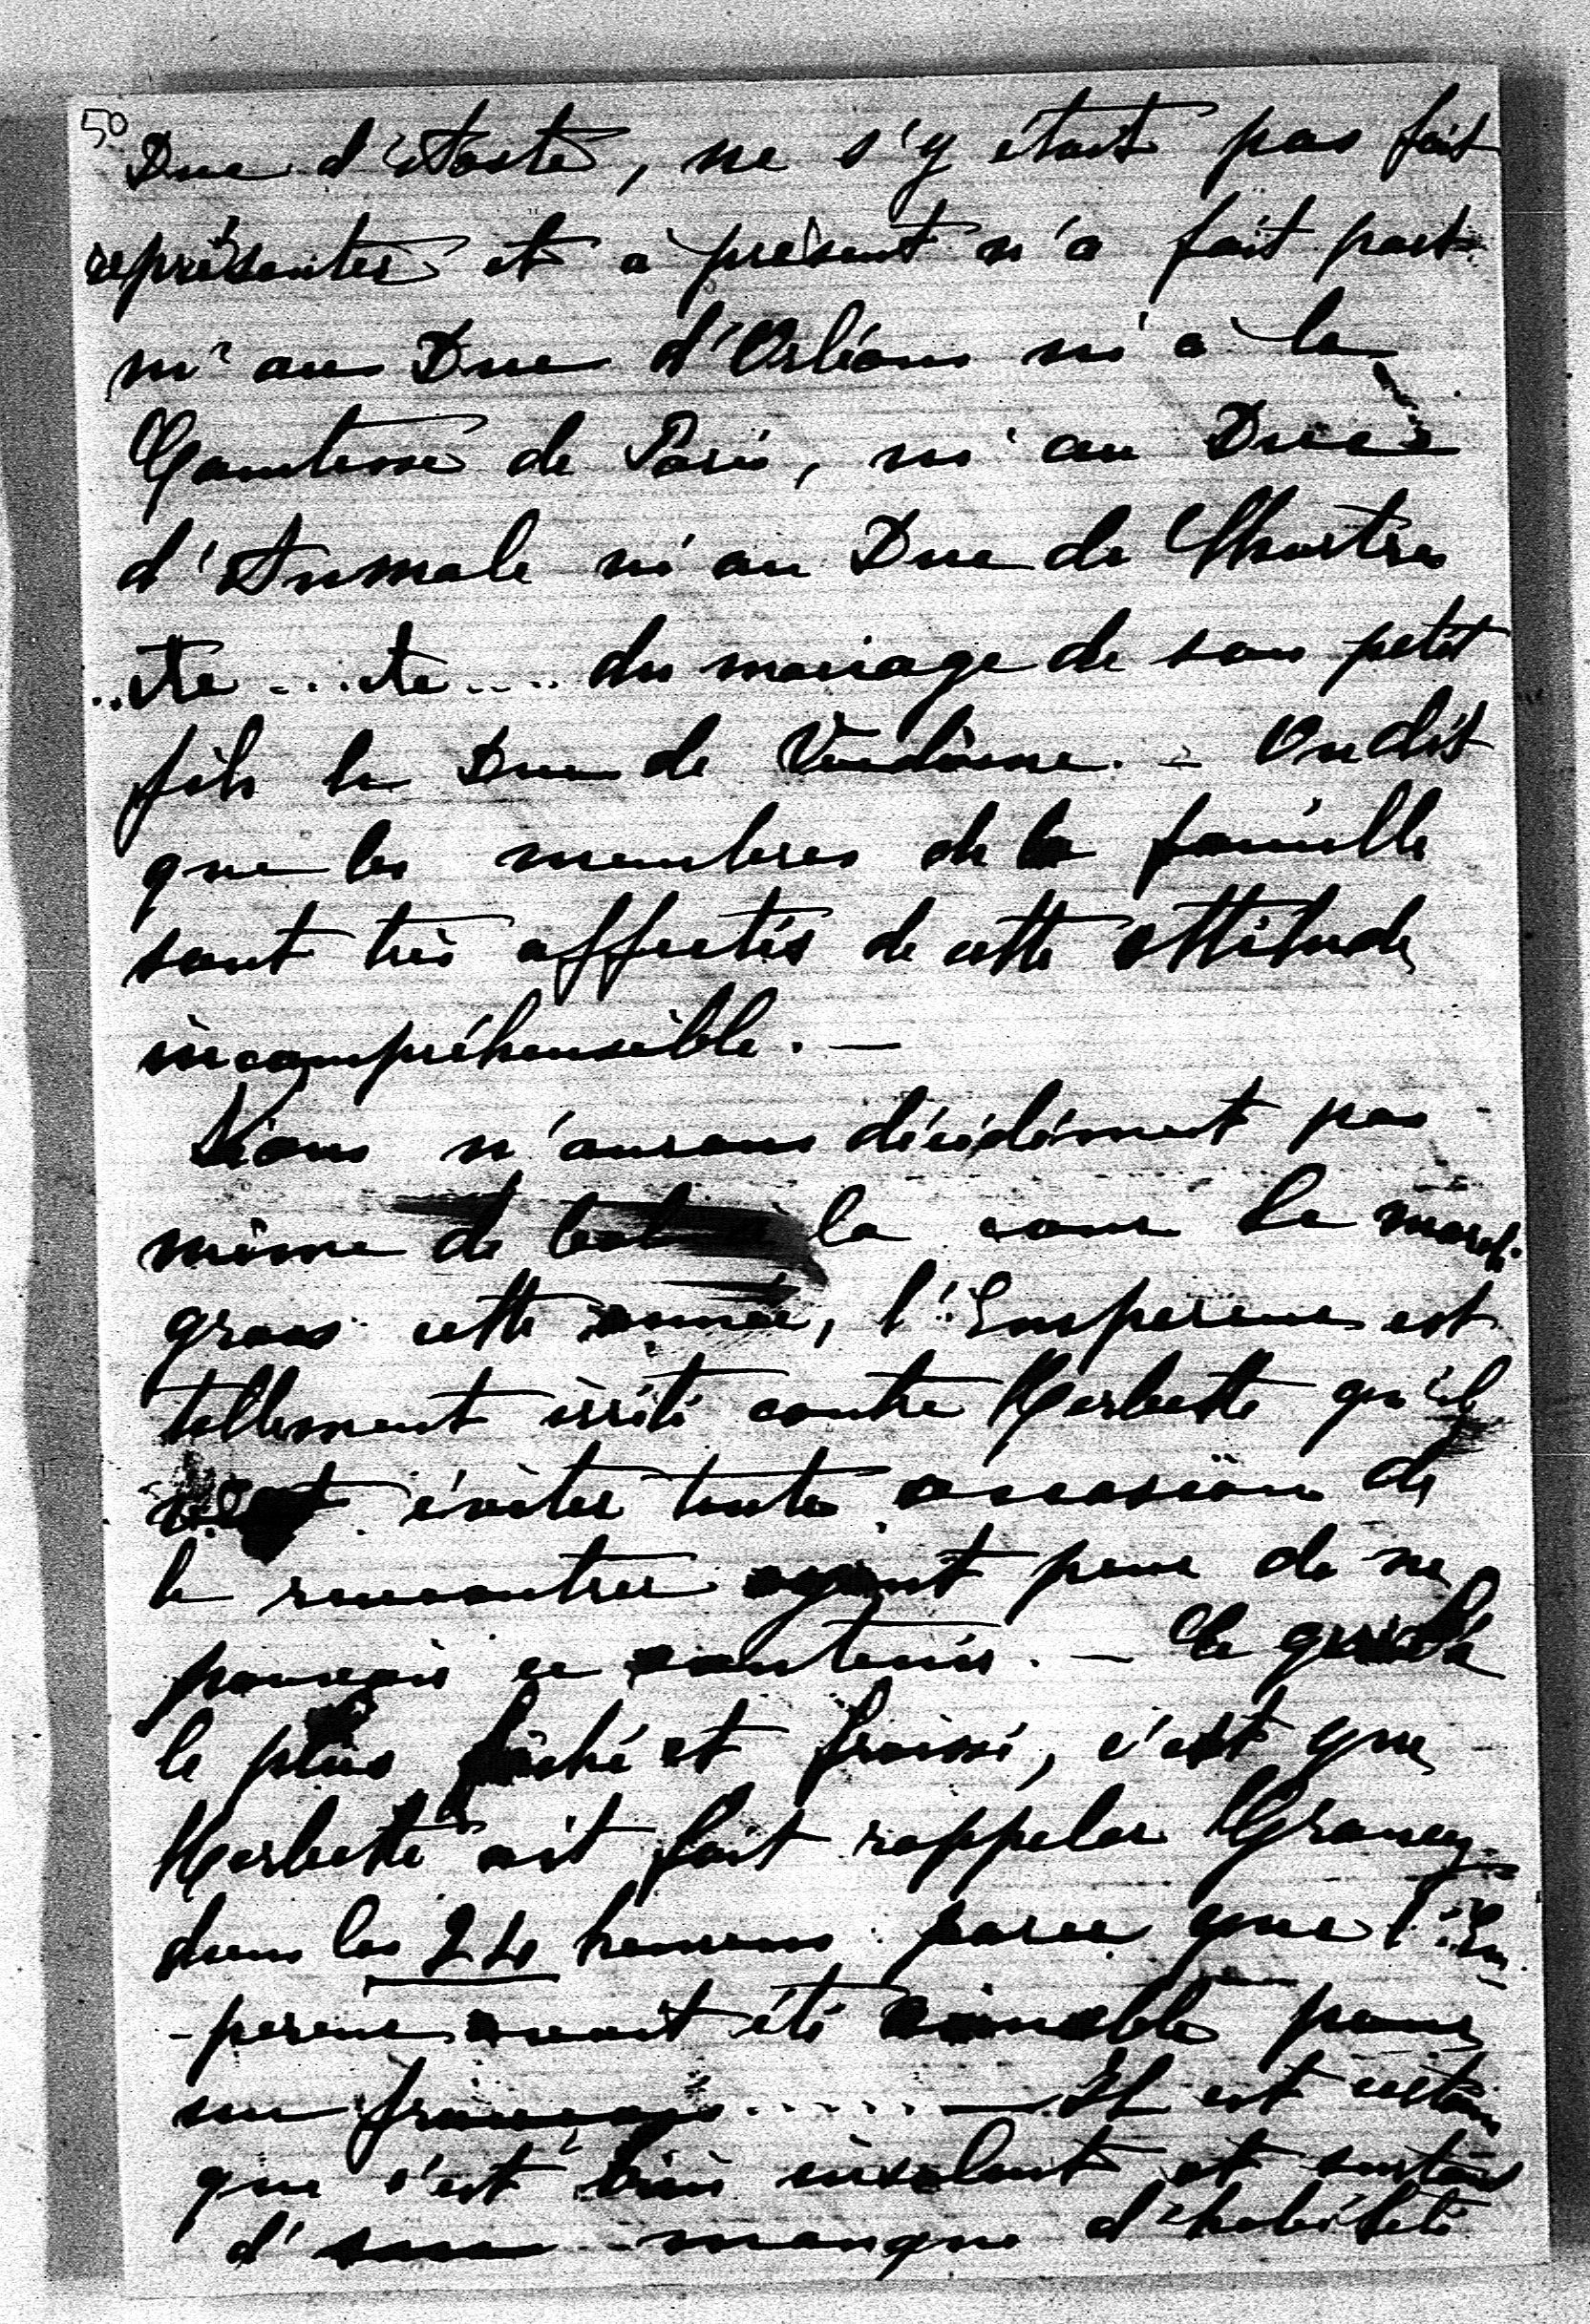 50
Duc d'Aoste, ne s'y était pas fait
représenter et à présent n'a fait part
ni au Duc d'Orléans ni à la
Comtesse de Paris, ni au Duc
d'Aumale ni au Duc de Chartres
..etc....etc.... du mariage de son petit
fils le Duc de Vendôme. - On dit
que les membres de la famille
sont très affectés de cette attitude
incompréhensible. —
Nous n'aurons décidément pas
même de bal à la cour le mardi-
gras cette année, l'Empereur est
tellement irrité contre Herbette qu'il
veut éviter toute occasion de
le rencontrer ayant peur de ne
pouvoir se contenir. — Ce qui l'a
le plus fâché et froissé, c'est que
Herbette ait fait rappeler Grancey
dans les 24 heures parce que l'Em
-pereur avait été aimable pour
un français...... — Il est certain
que c'est bien insolent et surtout
d'un manque d'habileté